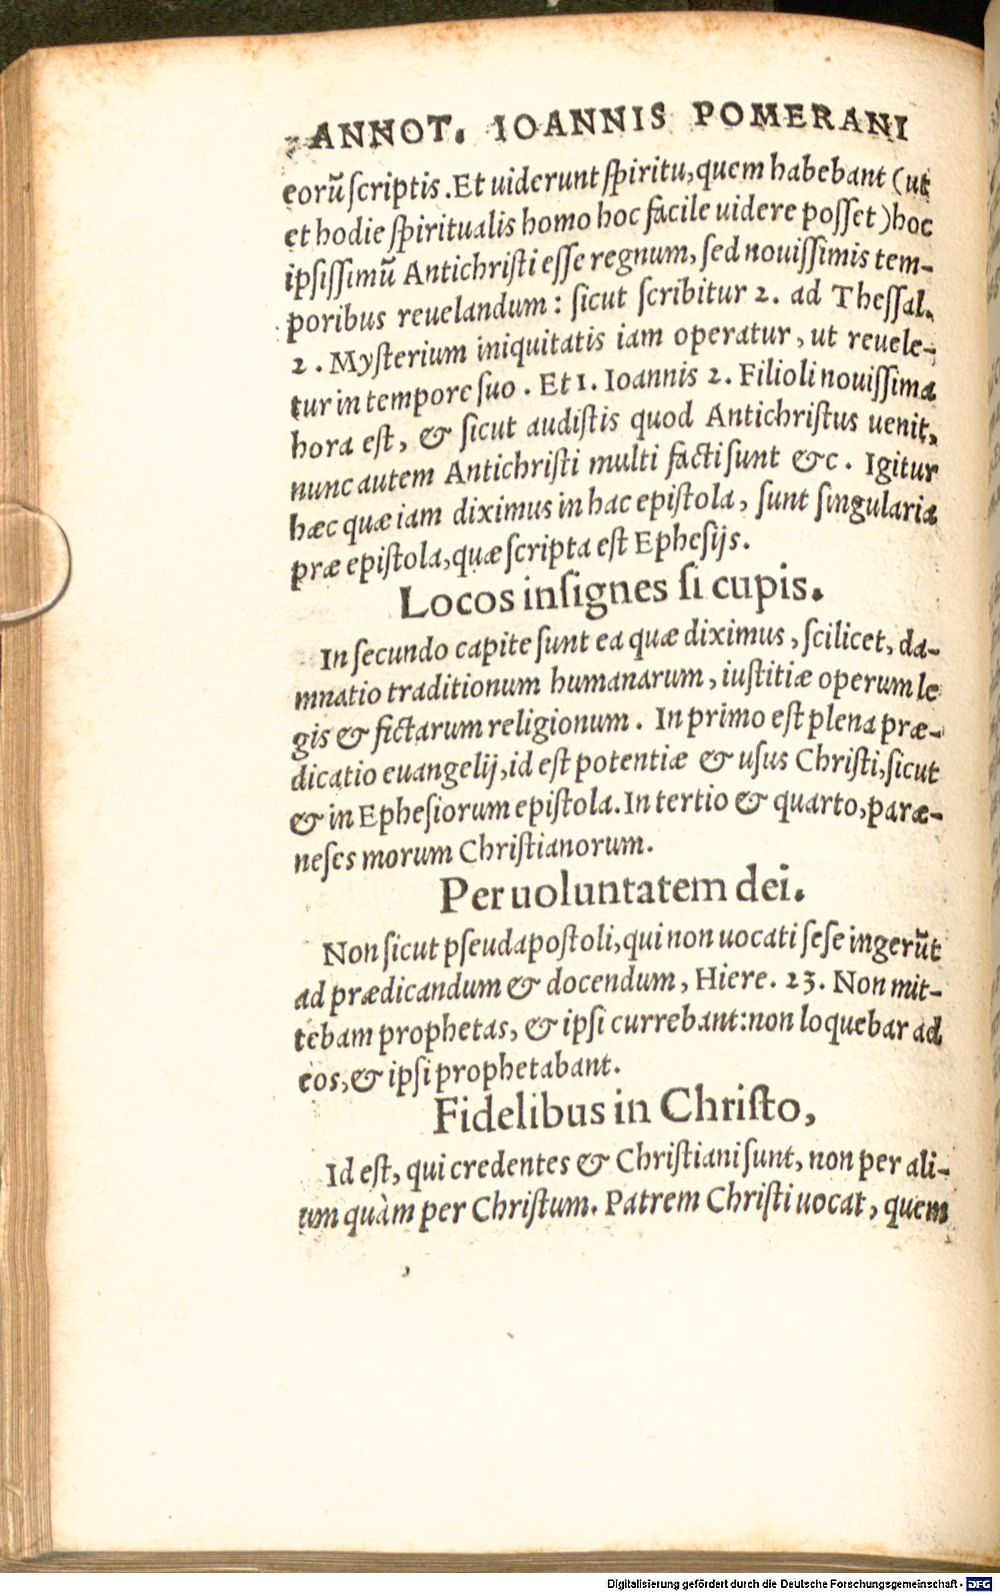 ANNOT. IOANNIS POMERANI
eorũ ſcriptis. Et uiderunt ſpiritu, quem habebant (ut
et hodie ſpiritualis homo hoc facile uidere poſſet) hoc
ipſiſſimũ Antichriſti eſſe regnum, ſed nouiſſimis tem-
poribus reuelandum: ſicut ſcribitur 2. ad Theſſal.
2. Myſterium iniquitatis iam operatur, ut reuele-
tur in tempore ſuo. Et 1. Ioannis 2. Filioli nouiſſima
hora eſt, & ſicut audiſtis quod Antichriſtus uenit,
nunc autem Antichriſti multi facti ſunt &c. Igitur
hæc quæ iam diximus in hac epiſtola, ſunt ſingularia
præ epiſtola, quæ ſcripta eſt Epheſijs.
Locos inſignes ſi cupis.
In ſecundo capite ſunt ea quæ diximus, ſcilicet, da-
mnatio traditionum humanarum, iuſtitiæ operum le
gis & fictarum religionum. In primo eſt plena præ-
dicatio euangelij, id eſt potentiæ & uſus Chriſti, ſicut
& in Epheſiorum epiſtola. In tertio & quarto, paræ-
neſes morum Chriſtianorum.
Per uoluntatem dei.
Non ſicut pſeudapoſtoli, qui non uocati ſeſe ingerũt
ad prædicandum & docendum, Hiere. 23. Non mit-
tebam prophetas, & ipſi currebant: non loquebar ad
eos, & ipſi prophetabant.
Fidelibus in Chriſto,
Id eſt, qui credentes & Chriſtiani ſunt, non per ali-
um quàm per Chriſtum. Patrem Chriſti uocat, quem
Digitalisierung gefördert durch die Deutsche Forschungsgemeinschaft - DFG